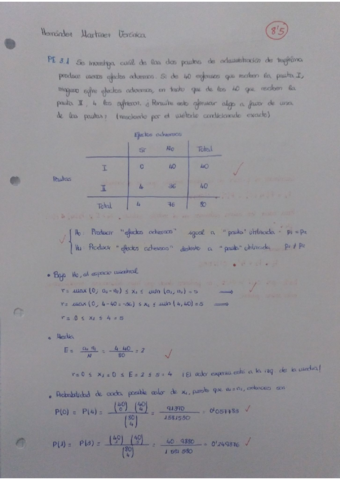 Hernández Martínez Verónica
8'5
P5 2.1 Se investiga cuál de las dos pautas de administración de
produce menos efectos adversos. Si de 40 enfermos que reciben la pauta I,
ninguno sufre efectos adversos, en tanto que de los 40 que reciben la
pauta II, 4 los sufrieron. ¿Permite esto afirmar algo a favor de una
de las pautas? (resolverlo por el método condicionado exacto)
Efectos adversos
Sí No Total
I 0 40 40
Pautas
II 4 36 40
Total 4 76 80
H0 Producir "efectos adversos" igual a "pauta" utilizada p1 = p2
H1 Producir "efectos adversos" distinto a "pauta" utilizada p1 ≠ p2
• Bajo H0, el espacio muestral
r = máx (0, a1 - n2) ≤ x1 ≤ mín (a1, n1) = s
r = máx (0, 4-40 = -36) ≤ x1 ≤ mín (4, 40) = s
r = 0 ≤ x1 ≤ 4 = s
• Media
E = = 4·40 / 80 = 2
r = 0 ≤ x1 = 0 ≤ E = 2 ≤ s = 4
• Probabilidad de cada posible valor de x1, puesto que n1 = n2, entonces son
P(0) = P(4) = (40 0) (40 4) / (80 4) = 91390 / 1581580 =
P(1) = P(3) = (40 1) (40 3) / (80 4) = 40 · 9880 / 1581580 =